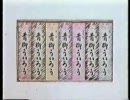 青柳ういろう
青柳ういろう
青柳ういろう
青柳ういろう
青柳ういろう
青柳ういろう